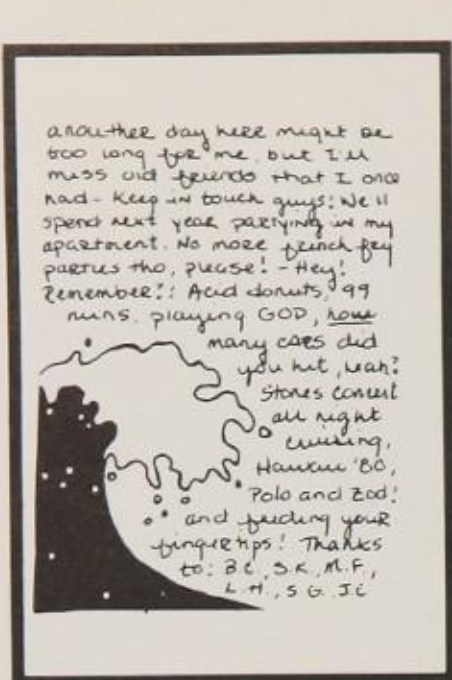 anouther day here might be
too long for me, but I'll
miss old friends that I once
had - Keep in touch guys! We'll
spend next year partying in my
apartment. No more french fry
parties tho, please! - Hey!
Remember!: Acid donuts, 99
runs, playing GOD, how
many cars did
you hit, Leah?
Stones concert
all night
cruising,
Hawaii '80,
Polo and Zod!
and feeding your
fingertips! Thanks
to: B C, S.K., M.F.,
L.H., S G. J.C